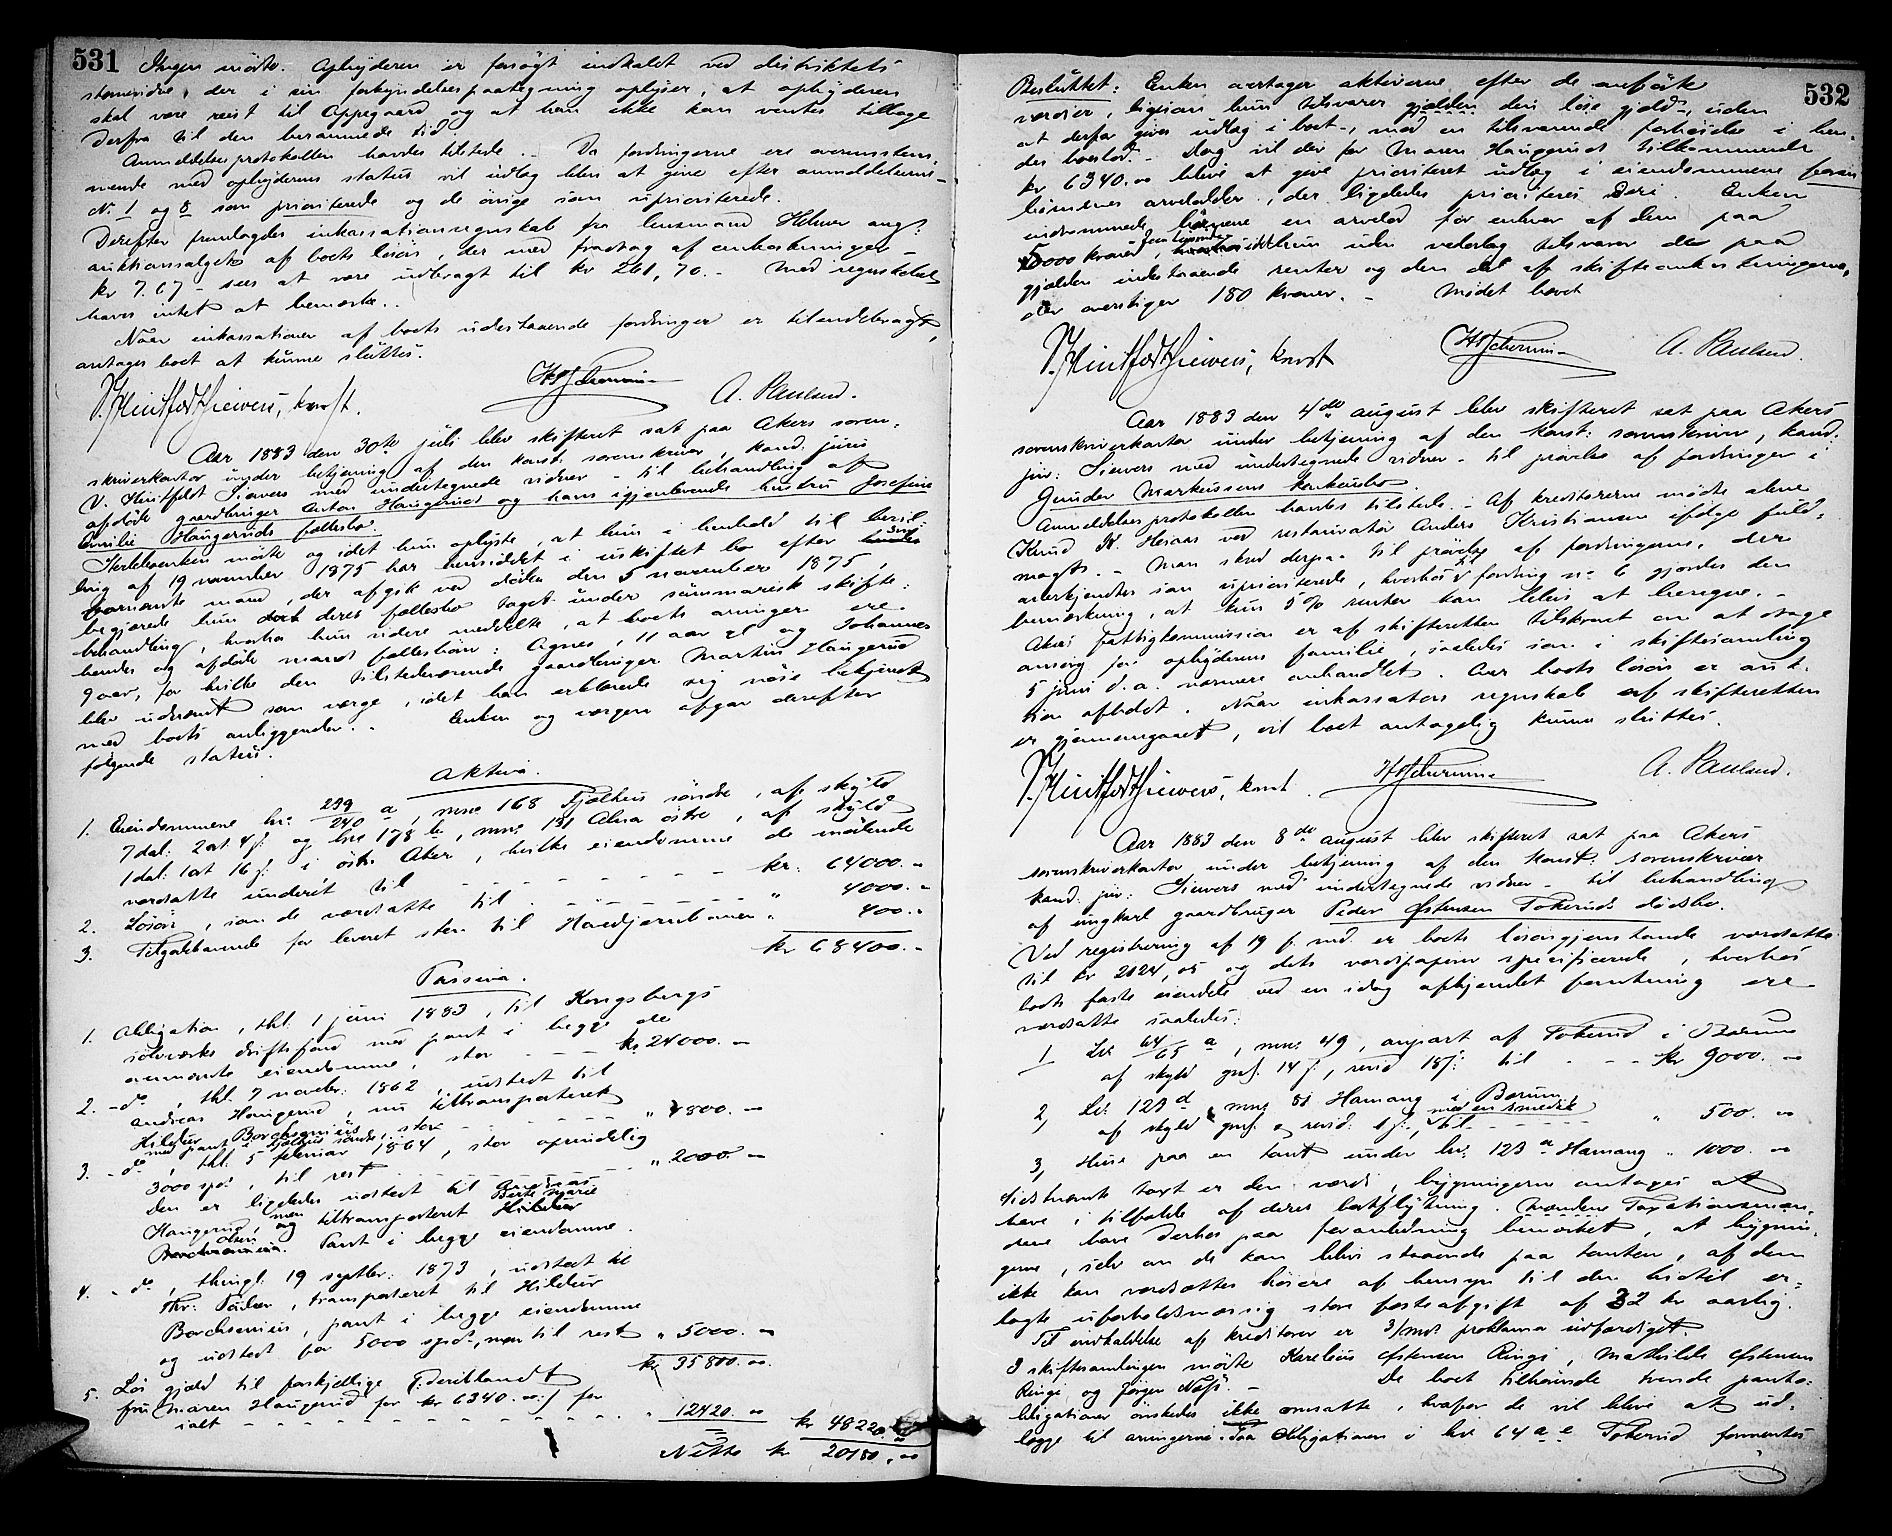 531
Ingen mødte. Ophyderen er forsøgt indkaldt ved distriktets
stævnevidne, der i sin forkyndelsespaategning oplyser, at ophyderen
skal være reist til Oppegaard og at han ikke kan ventes tilbage
derfra til den berammede tid.
Anmeldelsesprotokollen havdes tilstede. - Da fordringerne ere overensstem-
mende med ophyderens status vil udlæg blive at give efter anmeldelserne
No 1 og 8 som prioriterede og de øvrige som uprioriterede.
Derefter fremlagdes inkassationsregnskab fra lensmand Helmer ang:
auktionssalget af boets løsøre, der med fradrag af omkostninger -
kr 7.67 - sees at være udbragt til kr 261,70. - Med regnskabet
haves intet at bemærke.
Naar inkassationen af boets udestaaende fordringer er tilendebragt,
antages boet at kunne sluttes.
V. Huitfeldt Siewers, konst. A. Paulsen.
Aar 1883 den 30te juli blev skifteret sat paa Akers soren-
skriverkontor under betjening af den konst: sorenskriver, kand. juris
V. Huitfeldt Siewers med undertegnede vidner - til behandling af
afdøde gaardbruger Anton Haugerud og hans igjenlevende hustru Josefine
Emilie Haugeruds fællesbo.
Herfleenken mødte og idet hun oplyste, at hun i henhold til bevil-
ling af 19 november 1875 har hensiddet i uskiftet bo efter sin
bornævnte mand, der afgik ved døden den 5 november 1875,
begjærede hun deres fællesbo taget under summarisk skifte-
behandling, hvorhos hun videre meddelte, at boets arvinger ere
hendes og afdøde mands fællesbørn: Agnes, 11 aar gl og Johannes
9 aar, for hvilke den tilstedeværende gaardbruger Martin Haugerud
blev udnævnt som værge, idet han erklærede sig nøie bekjendt
med boets anliggender. - Enken og værgen afgav derefter
følgende status.
Aktiva.
1. Eiendommene lnr: 239/240 a, mno 168 Fjælhus søndre, af skyld
7 dal. 2 ort. 4 s. og lnr 178 b, mno. 131 Alna østre, af skyld
1 dal: 1 ort 16 s. i østr. Aker, hvilke eiendomme de mødende
værdsatte underet til - - - - - - - kr. 64000. -
2. Løsøre, som de værdsatte til - - - - - " 4000. -
3. Tilgodehavende for leveret sten til Hovedjernbanen " 400. -
kr 68400. -
Passiva.
1. Obligation, thl. 1 juni 1883, til Kongsbergs
sølvværks driftsfond med pant i begge de
ovennævnte eiendomme, stor - - - kr. 24000. -
2. - do, thl. 7 novebr. 1862, udstedt til
Andreas Haugerud, nu tiltransporteret
Hildur Borchsenius, stor
med pant i Fjælhus søndre, - - - " 4800. -
3. - do, thl. 5 februar 1864, stor oprindelig
3000 spd., til rest - - - - - " 2000. -
den er ligeledes udstedt til Andreas
Haugerud, men tiltransporteret Berthe Marie
Olsen. Pant i begge eiendomme.
4. - do, thingl. 19 septbr: 1873, udstedt til
Thr: Paulsen, transporteret til Hildur
Borchsenius, pant i begge eiendomme
og udstedt for 5000 spd., men til rest " 5000. -
kr 35800. oo.
5. Løs gjæld til forskjellige (: deriblandt
fru Maren Haugerud for kr 6340. oo :) for
ialt - - - - - - - " 12420. oo kr 48220. oo
Netto kr 20180. oo

532
Besluttet: Enken overtager aktiverne efter de anførte
værdier, ligesom hun tilsvarer gjælden den løse gjæld, uden
at derfor gives udlæg i boet, mod en tilsvarende forhøielse i hen-
des boeslod. - Dog vil der for Maren Haugerud tilkommende
kr 6340. oo blive at give prioriteret udlæg i eiendommene foran
børnenes arvelodder, der ligeledes prioriteres deri. Enken
indrømmede børnene en arvelod for enhver af dem paa
5000 kroner, hvorhos hun uden vederlag tilsvarer de paa
gjælden indestaaende renter og den del af skifteomkostningerne,
der overstiger 180 kroner. - Mødet hævet
V. Huitfeldt Siewers, konst A. Paulsen.
Aar 1883 den 4de august blev skifteret sat paa Akers
sorenskriverkontor under betjening af den konst: sorenskriver, kand.
jur: Siewers med undertegnede vidner - til prøvelse af fordringer i
Gunder Markussens konkursbo.
Anmeldelsesprotokollen havdes tilstede. - Af kreditorerne mødte alene
Knud K. Hesaas ved restauratør Anders Kristiansen ifølge fuld-
magt. - Man skred derpaa til prøvelse af fordringerne, der
anerkjendtes som uprioriterede, hvorhos ved fordring no 6 gjordes den
bemærkning, at kun 5 % renter kan blive at beregne. -
Akers fattigkommission er af skifteretten tilskrevet om at drage
omsorg for ophyderens familie, saaledes som i skiftesamling
5 juni d.a. nærmere omhandlet. Over boets løsøre er auk-
tion afholdt. Naar inkassators regnskab af skifteretten
er gjennemgaaet, vil boet antagelig kunne sluttes.
V. Huitfeldt Siewers, konst. A. Paulsen.
Aar 1883 den 8de august blev skifteret sat paa Akers
sorenskriverkontor under betjening af den konst: sorenskriver
kand. jur: Siewers med undertegnede vidner - til behandling
af ungkarl gaardbruger Peder Østensen Tokeruds dødsbo.
Ved registrering af 19 f. md. er boets løsøregjenstande værdsatte
til kr 2024,05 og dets værdipapirer specificerede, hvorhos
boets faste eiendele ved en idag afhjemlet forretning ere
værdsatte saaledes:
1 Lr. 64/65 a, mno. 49, anpart af Tokerud i Bærum
af skyld gml. 14 s., revid 18 s: til - - - kr 9000. -
2, Lr. 123 d, mno. 51 Hamang i Bærum
af skyld gml. 2, revid: 1 s., med en smedie til - - - " 500. oo
3, Huse paa en tomt under lnr. 123 a Hamang " 1000. -
Sidstnævnte taxt er den værdi, bygningerne antages at
have i tilfælde af deres bortflytning. Taxationsmæn-
dene have derhos paa foranledning bemærket, at bygnin-
gerne, selv om de kan blive staaende paa tomten, af dem
ikke kan værdsættes høiere af hensyn til den hidtil er-
lagte uforholdsmæssig store fæsteafgift af 32 kr aarlig.
Til indkaldelse af kreditorer er 3/mds. proklama udfærdiget.
I skiftesamlingen mødte Karelius Østensen Ringi, Mathilde Østensen
Ringe og Jørgen Næss. - De boet tilhørende tvende panto-
bligationer ønskedes ikke omsatte, hvorfor de vil blive at ud-
lægge til arvingerne. Paa obligationen i lnr 64 a e Tokerud formentes